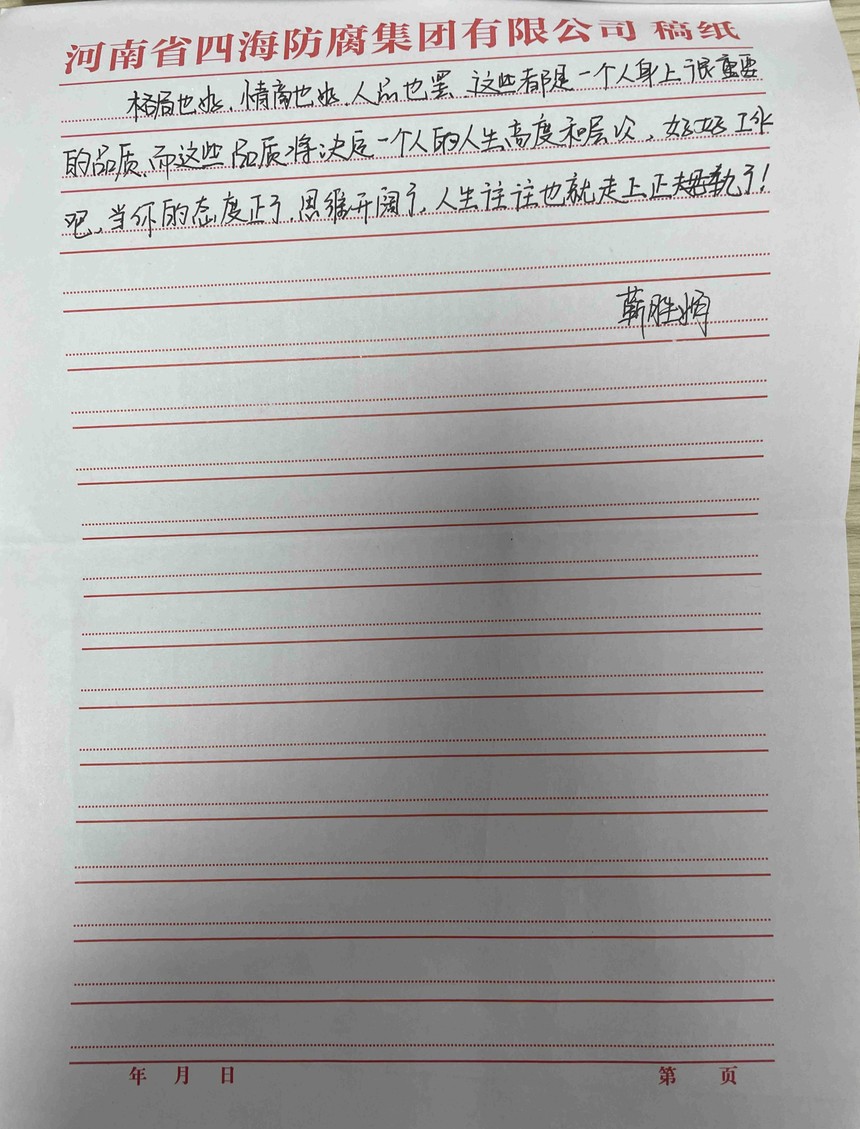 河南省四海防腐集团有限公司 稿纸
格局也好、情商也好、人品也罢、这些都是一个人身上很重要
的品质、而这些品质将决定一个人的人生高度和层次、好好工作
吧、当你的态度正了、思维开阔了、人生往往也就走上正轨了!
靳胜娟
年 月 日 第 页